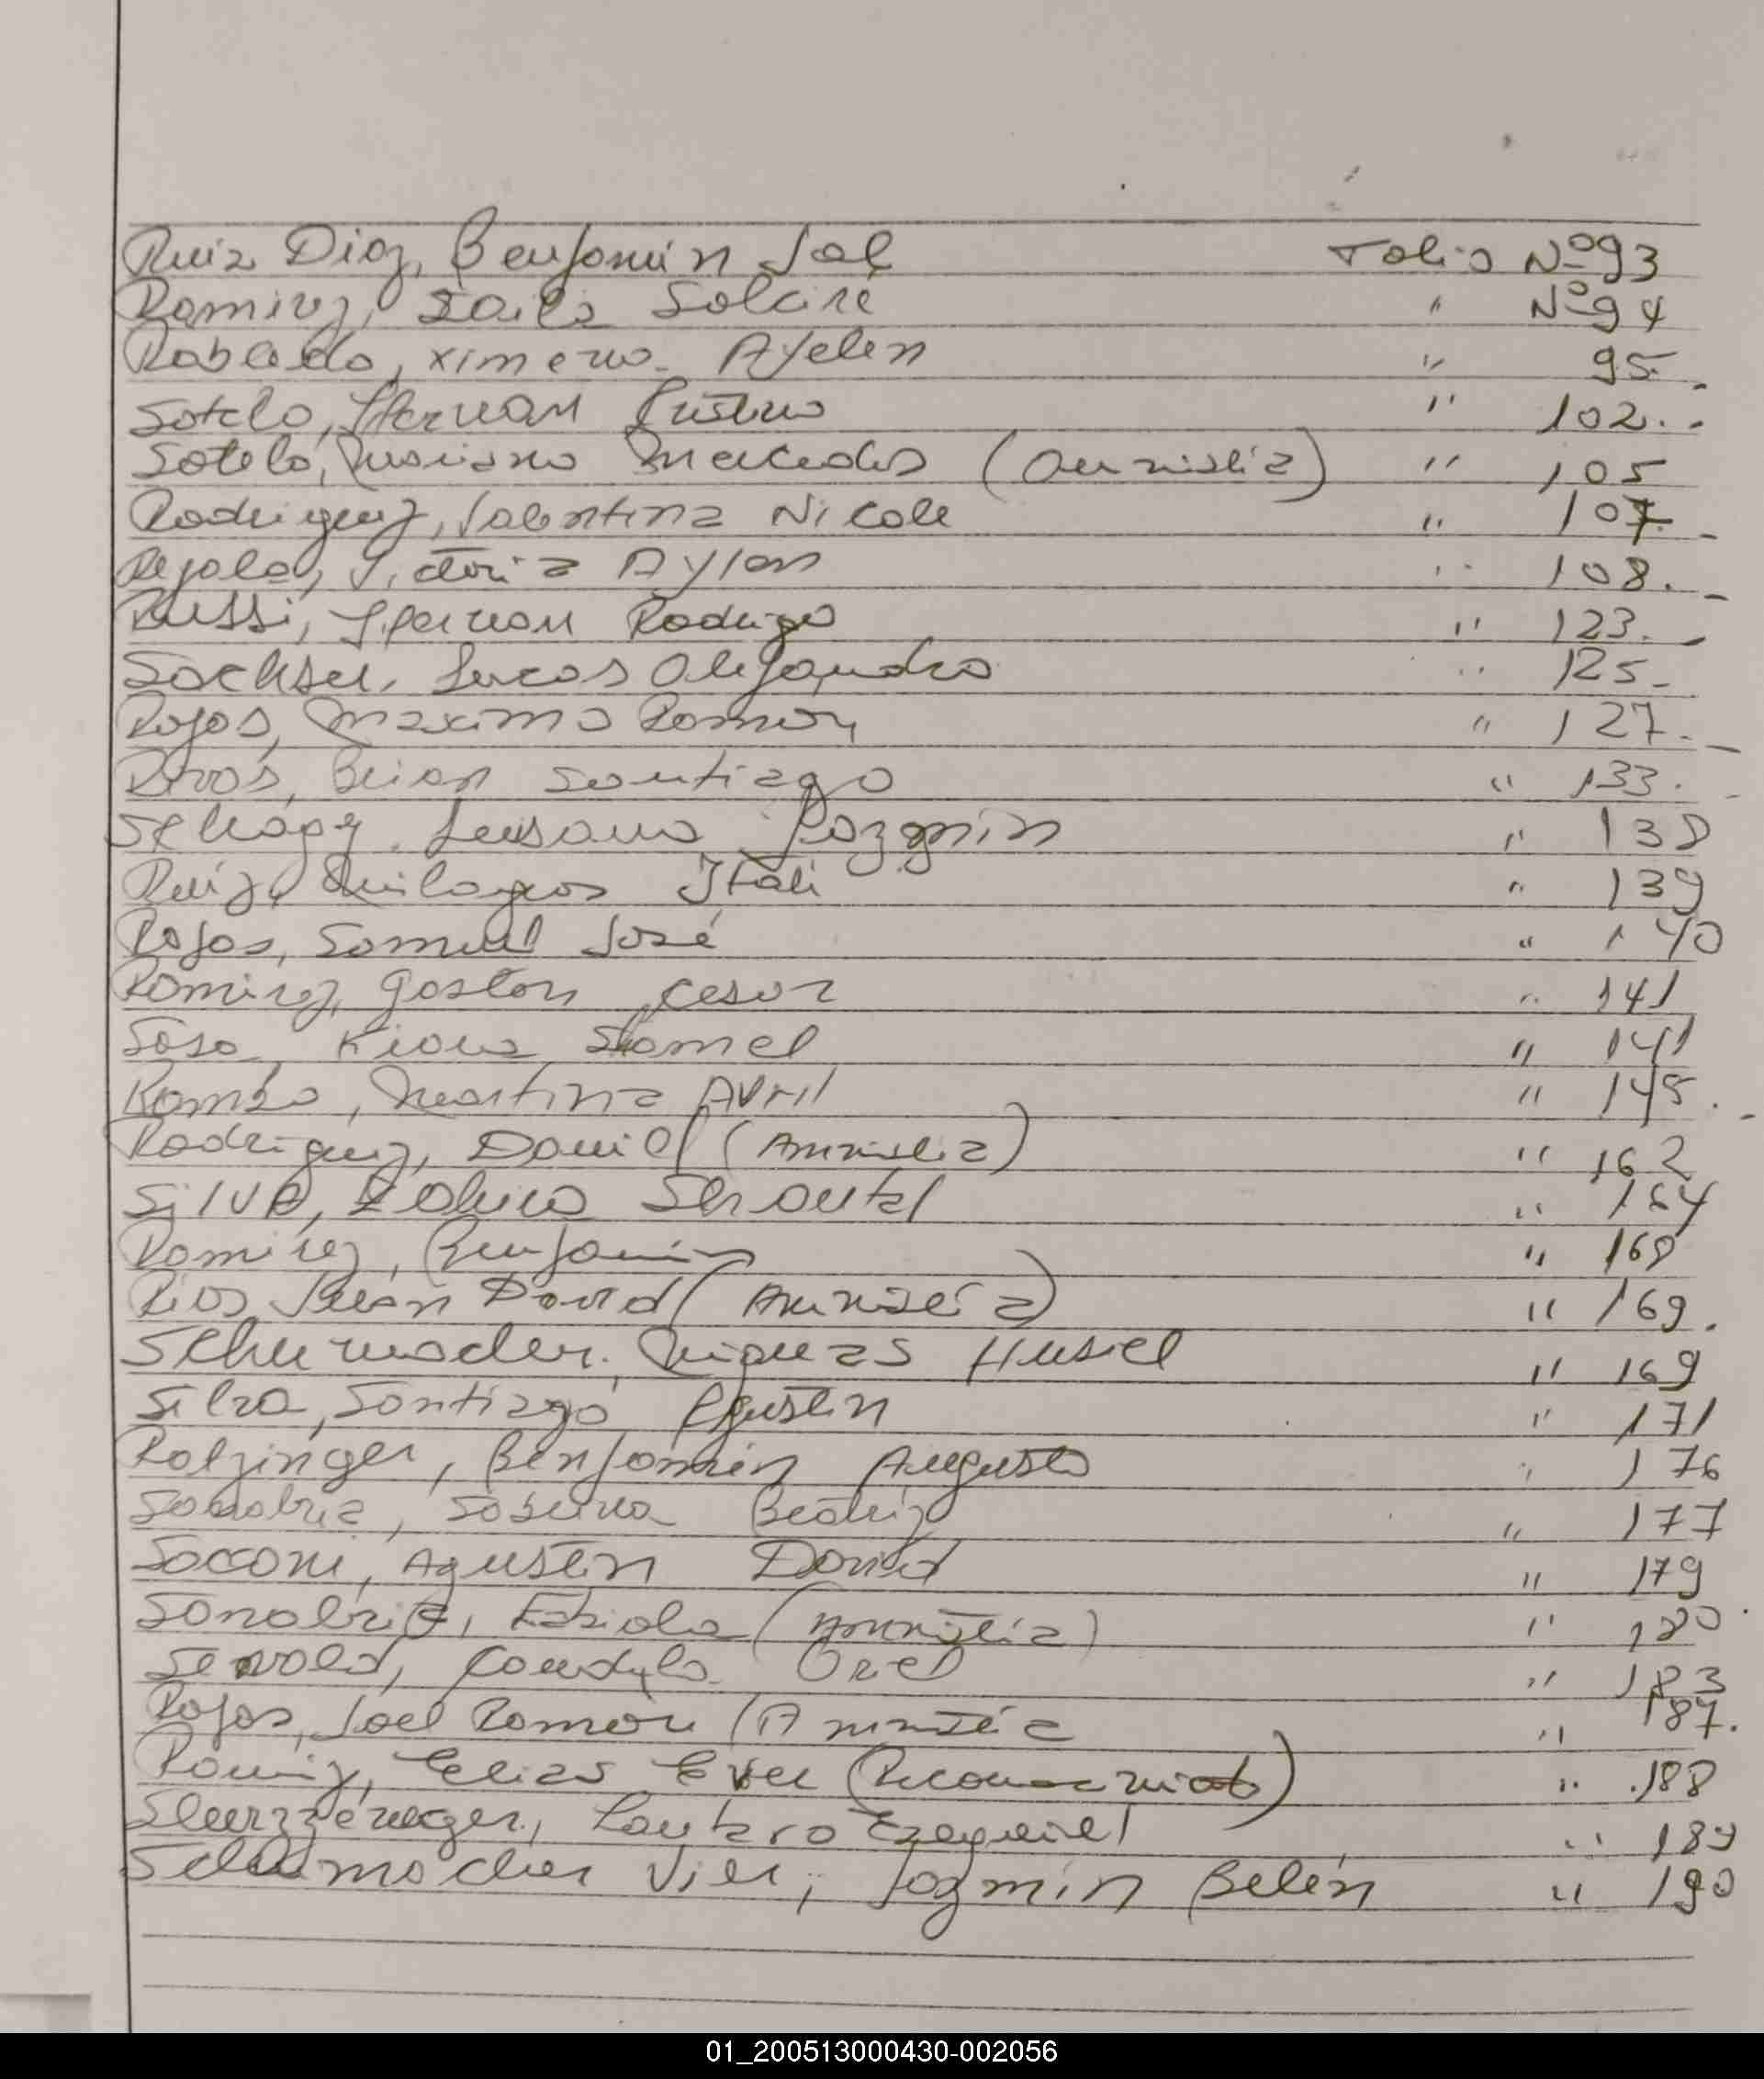 Ruiz Diaz, Benjamín Joel Folio Nº 93
Ramirez, Zaila Solcire " Nº 94
Robledo, Ximena Ayelen " 95
Sotelo, Hernan " 102.-
Sotelo, Mariano Mercedes (Amnistia) " 105
Rodriguez, Valentina Nicole " 107.-
Rejala, Victoria Aylen " 108.-
Russi, Hernan Rodrigo " 123.-
Sachser, Lucas Alejandro " 125.
Rojas, Maximo Ramon " 127.-
Rivas, Brian Santiago " 133.
Luisana Jazmín " 138
Ruiz, Milagros Itati " 139
Rojas, Samuel José " 140
Ramirez, Gaston Cesar " 141
Sosa, Kiara " 141
Romero, Martina Avril " 145.-
Rodriguez, Daniel (Amnistia) " 162
Silva, Shantal " 164
Ramírez, Benjamín " 168
Rios, Juan David (Amnistía) " 169.
Schumacher, Miqueas Husiel " 169
Silva, Santiago Agustin " 171
Ratzinger, Benjamín Augusto " 176
Sanabria, Sabrina Beatriz " 177
Sacconi, Agustin David " 179
Sanabria, Fabiola (Amnistía) " 180
Sewald, Candyla Oriel " 183
Rojas, Joel Ramon (Amnistía " 187.
Ramirez, Elias Ever (Reconocimiento) " 188
Lautaro Ezequiel " 189
Schumacher Vier, Jazmín Belén " 190
01_200513000430-002056